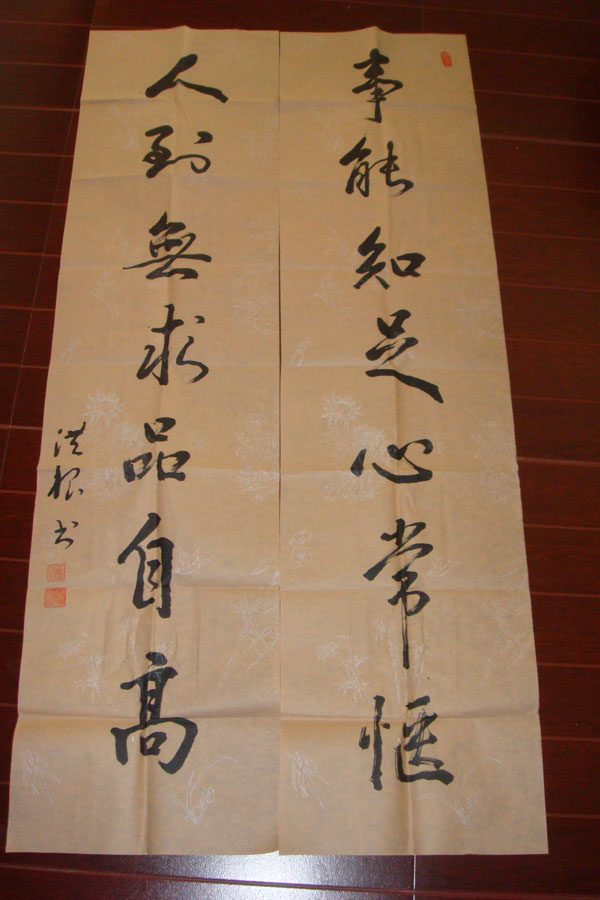 事能知足心常愜
人到無求品自高
洪根书